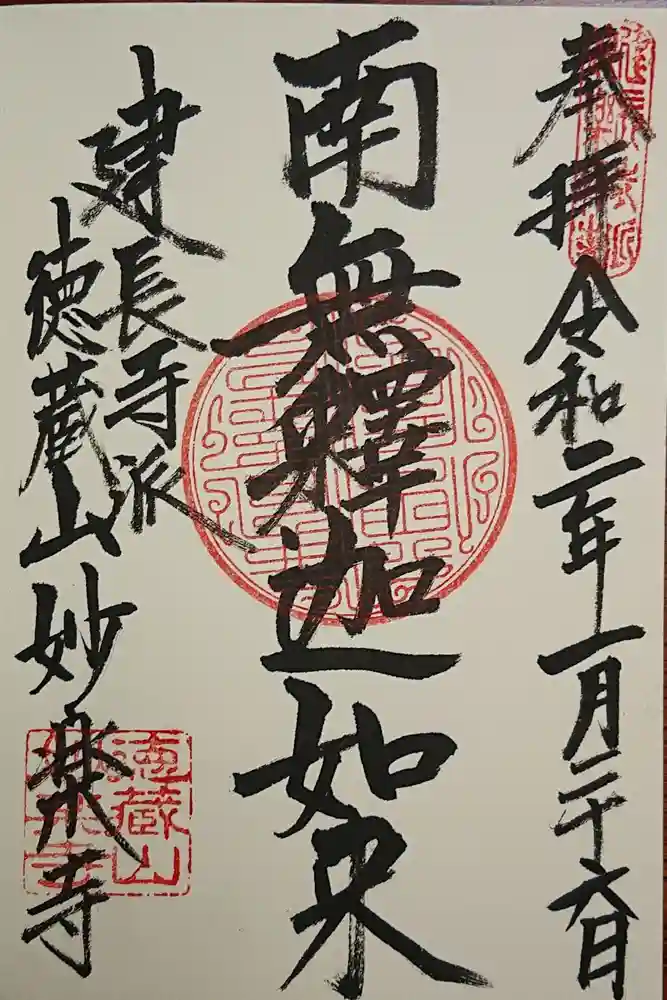 奉拝 令和二年一月二十六日
南無釋迦如来
建長寺派
徳蔵山 妙楽寺
徳蔵山
妙楽寺